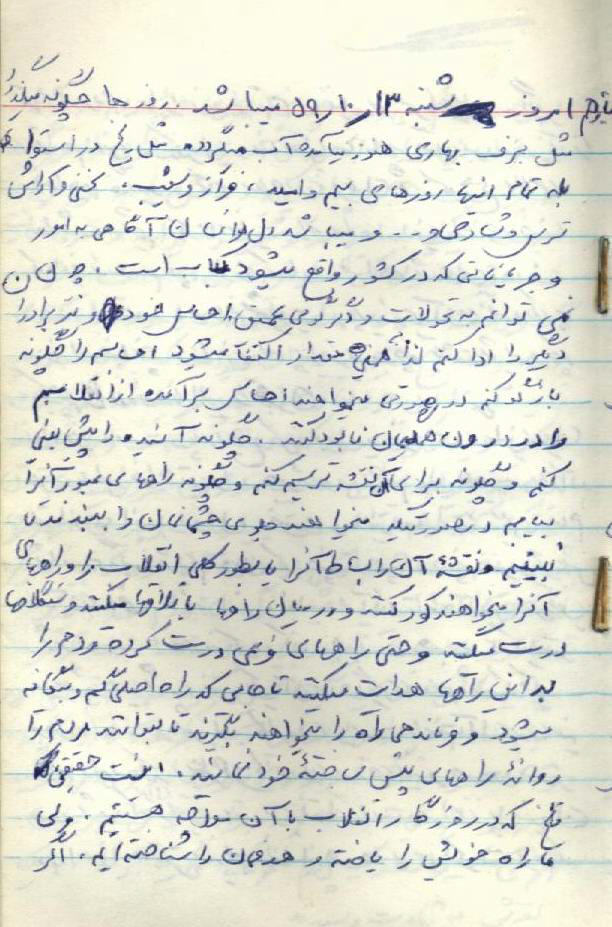 امروز شنبه ۱۳ر۱۰ر۵۹ میباشد. روزها چگونه میگذرد
مثل برف بهاری هنوز نیامده آب میگردد مثل یخ در استوا
به تمام اینها روزهای بیم و امید، فراز و نشیب،
ترس و شادی و... و میباشد دل آگاهی به امور
و جریاناتی که در کشور واقع میشود است. چون
نمی توانم به تحولات و دگرگونی عمیق احساس خود و نیز برادران
دیگر را ادا کنم لذا همین مقدار اکتفا میشود احساسم را چگونه
بازگو کنم در صورتی میخواهند احساس برآمده از انقلابیم
را در درون همیمان نابود کنند. چگونه آینده را پیش بینی
کنم و چگونه برای آن نقشه ترسیم کنم و چگونه راههای عبور آنرا
بیابم در صورتیکه میخواهند جلوی چشمانمان را ببندند تا
نبینیم و نقشه آن را بساط آنرا یا بطور کلی انقلاب را و راههای
آنرا میخواهند کور کنند و در میان راهها باتلاقها میکنند و سنگلاخها
درست میکنند و حتی راههای فرعی درست کرده و مردم را
به این راهها هدایت میکنند تا جایی که راه اصلی گم و بیگانه
میشود و فرماندهی راه را میخواهند بگیرند تا بتوانند مردم را
روانه راههای پیش ساخته خود نمایند. اینست حقیقت
تلخ که در روزگار انقلاب با آن مواجه هستیم. ولی
ما راه خویش را یافته و هدفمان را شناخته ایم، اگر